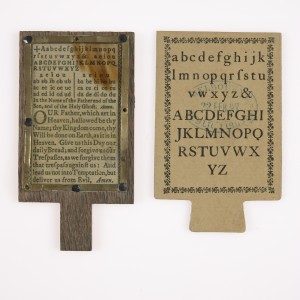 +Aabcdefghijklmnopq
rſstuvwxyz& aeiou
ABCDEFGHIJKLMNOPQ
RSTUVWXYZ
a e i o u
a e i o u
ab eb ib ob ub
ba be bi bo bu
ac ec ic oc uc
ca ce ci co cu
ad ed id od ud
da de di do du
In the Name of the Father and of the
Son, and of the Holy Ghost. Amen.
OUR Father, which art in
Heaven, hallowed be thy
Name; thy Kingdom come, thy
Will be done on Earth, as it is in
Heaven. Give us this Day our
daily Bread; and forgive us our
Treſpaſſes, as we forgive them
that treſpaſs againſt us: And
lead us not into Temptation, but
deliver us from Evil. Amen.
abcdefghijk
lmnopqrſstu
vwxyz&
ABCDEFGHI
JKLMNOPQ
RSTUVWX
YZ